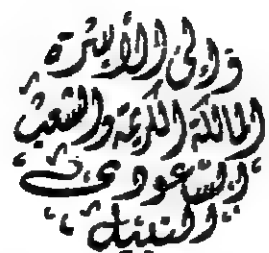 وإلى الأسرة
المالكة الكريمة والشعب
السعودي
النبيل